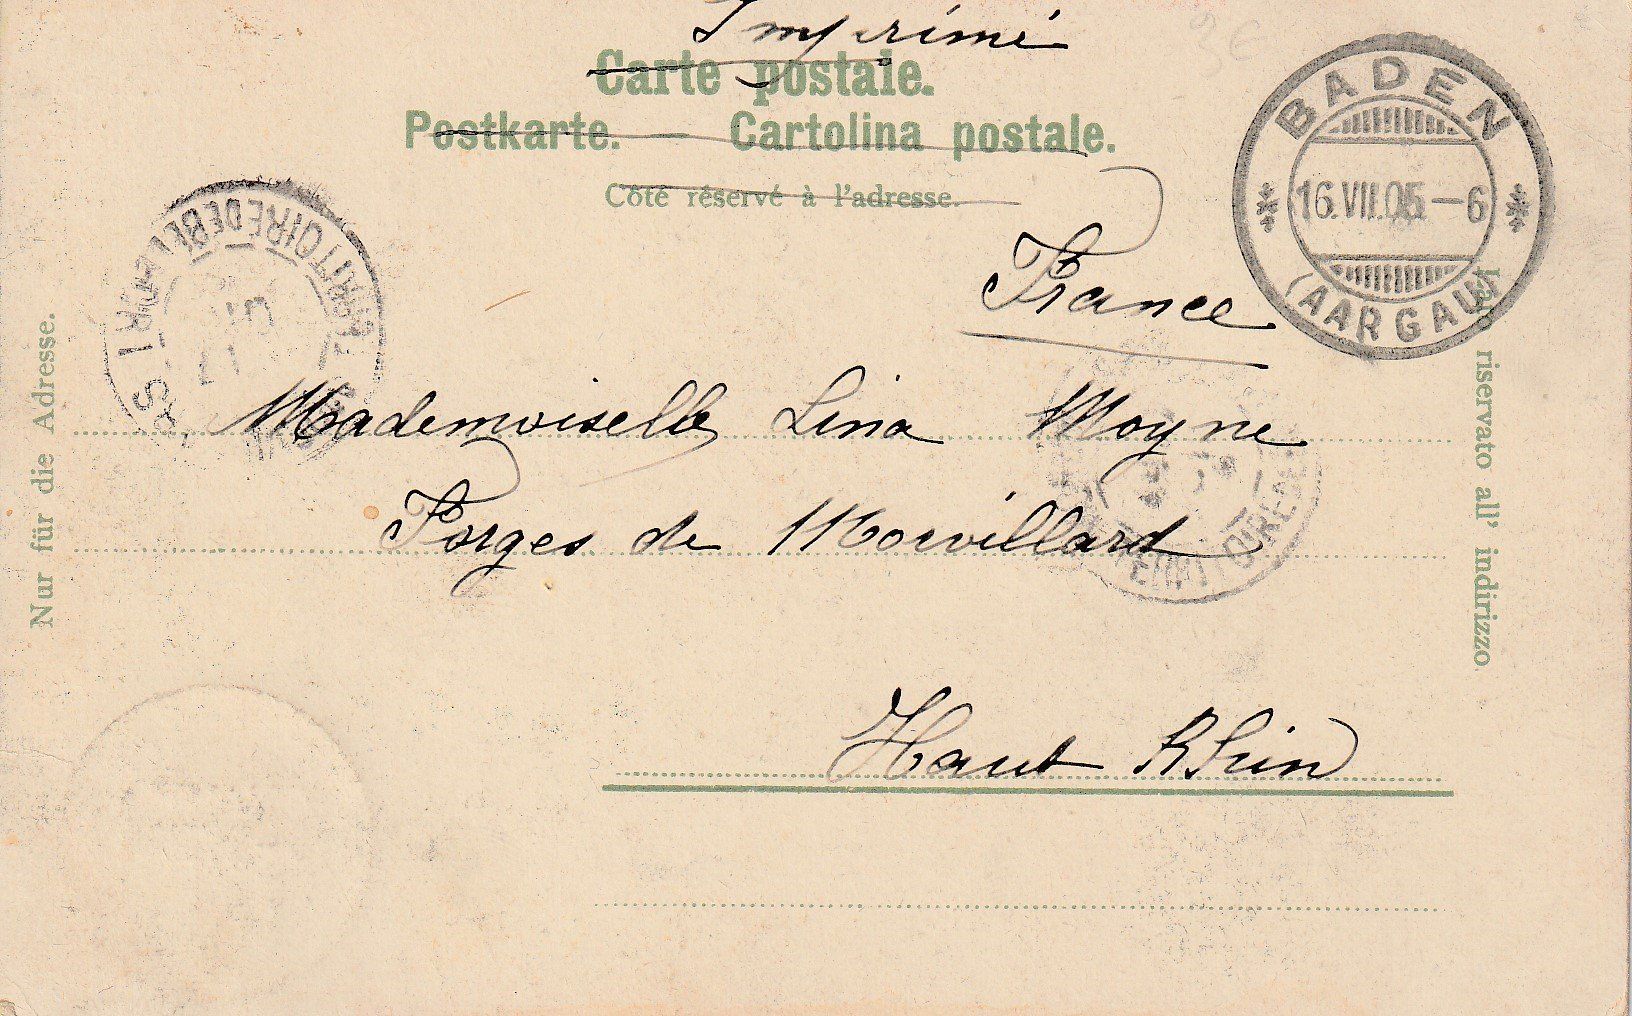 Imprimé
Carte postale.
Postkarte. Cartolina postale.
Côté réservé à l'adresse.
3€
BADEN
16.VII.05-6
(AARGAU)
TERRITOIRE DE
France
Mademoiselle Lina Moyne
Forges de Morvillard
TERRITOIRE
Haut Rhin
Nur für die Adresse.
riservato all' indirizzo